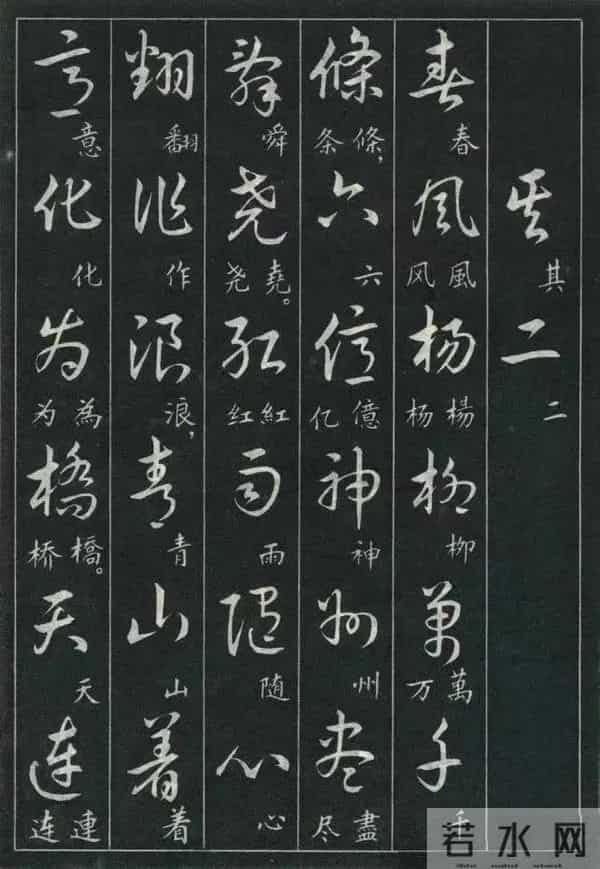 其二
其 二
春風楊柳萬千
春 風 风 楊 杨 柳 萬 万 千
條六億神州盡
條， 条 六 億 亿 神 州 盡 尽
舜堯紅雨随心
舜 堯。 尧 紅 红 雨 随 心
翻作浪青山着
翻 作 浪， 青 山 着
意化為橋天連
意 化 為 为 橋。 桥 天 連 连
若水网